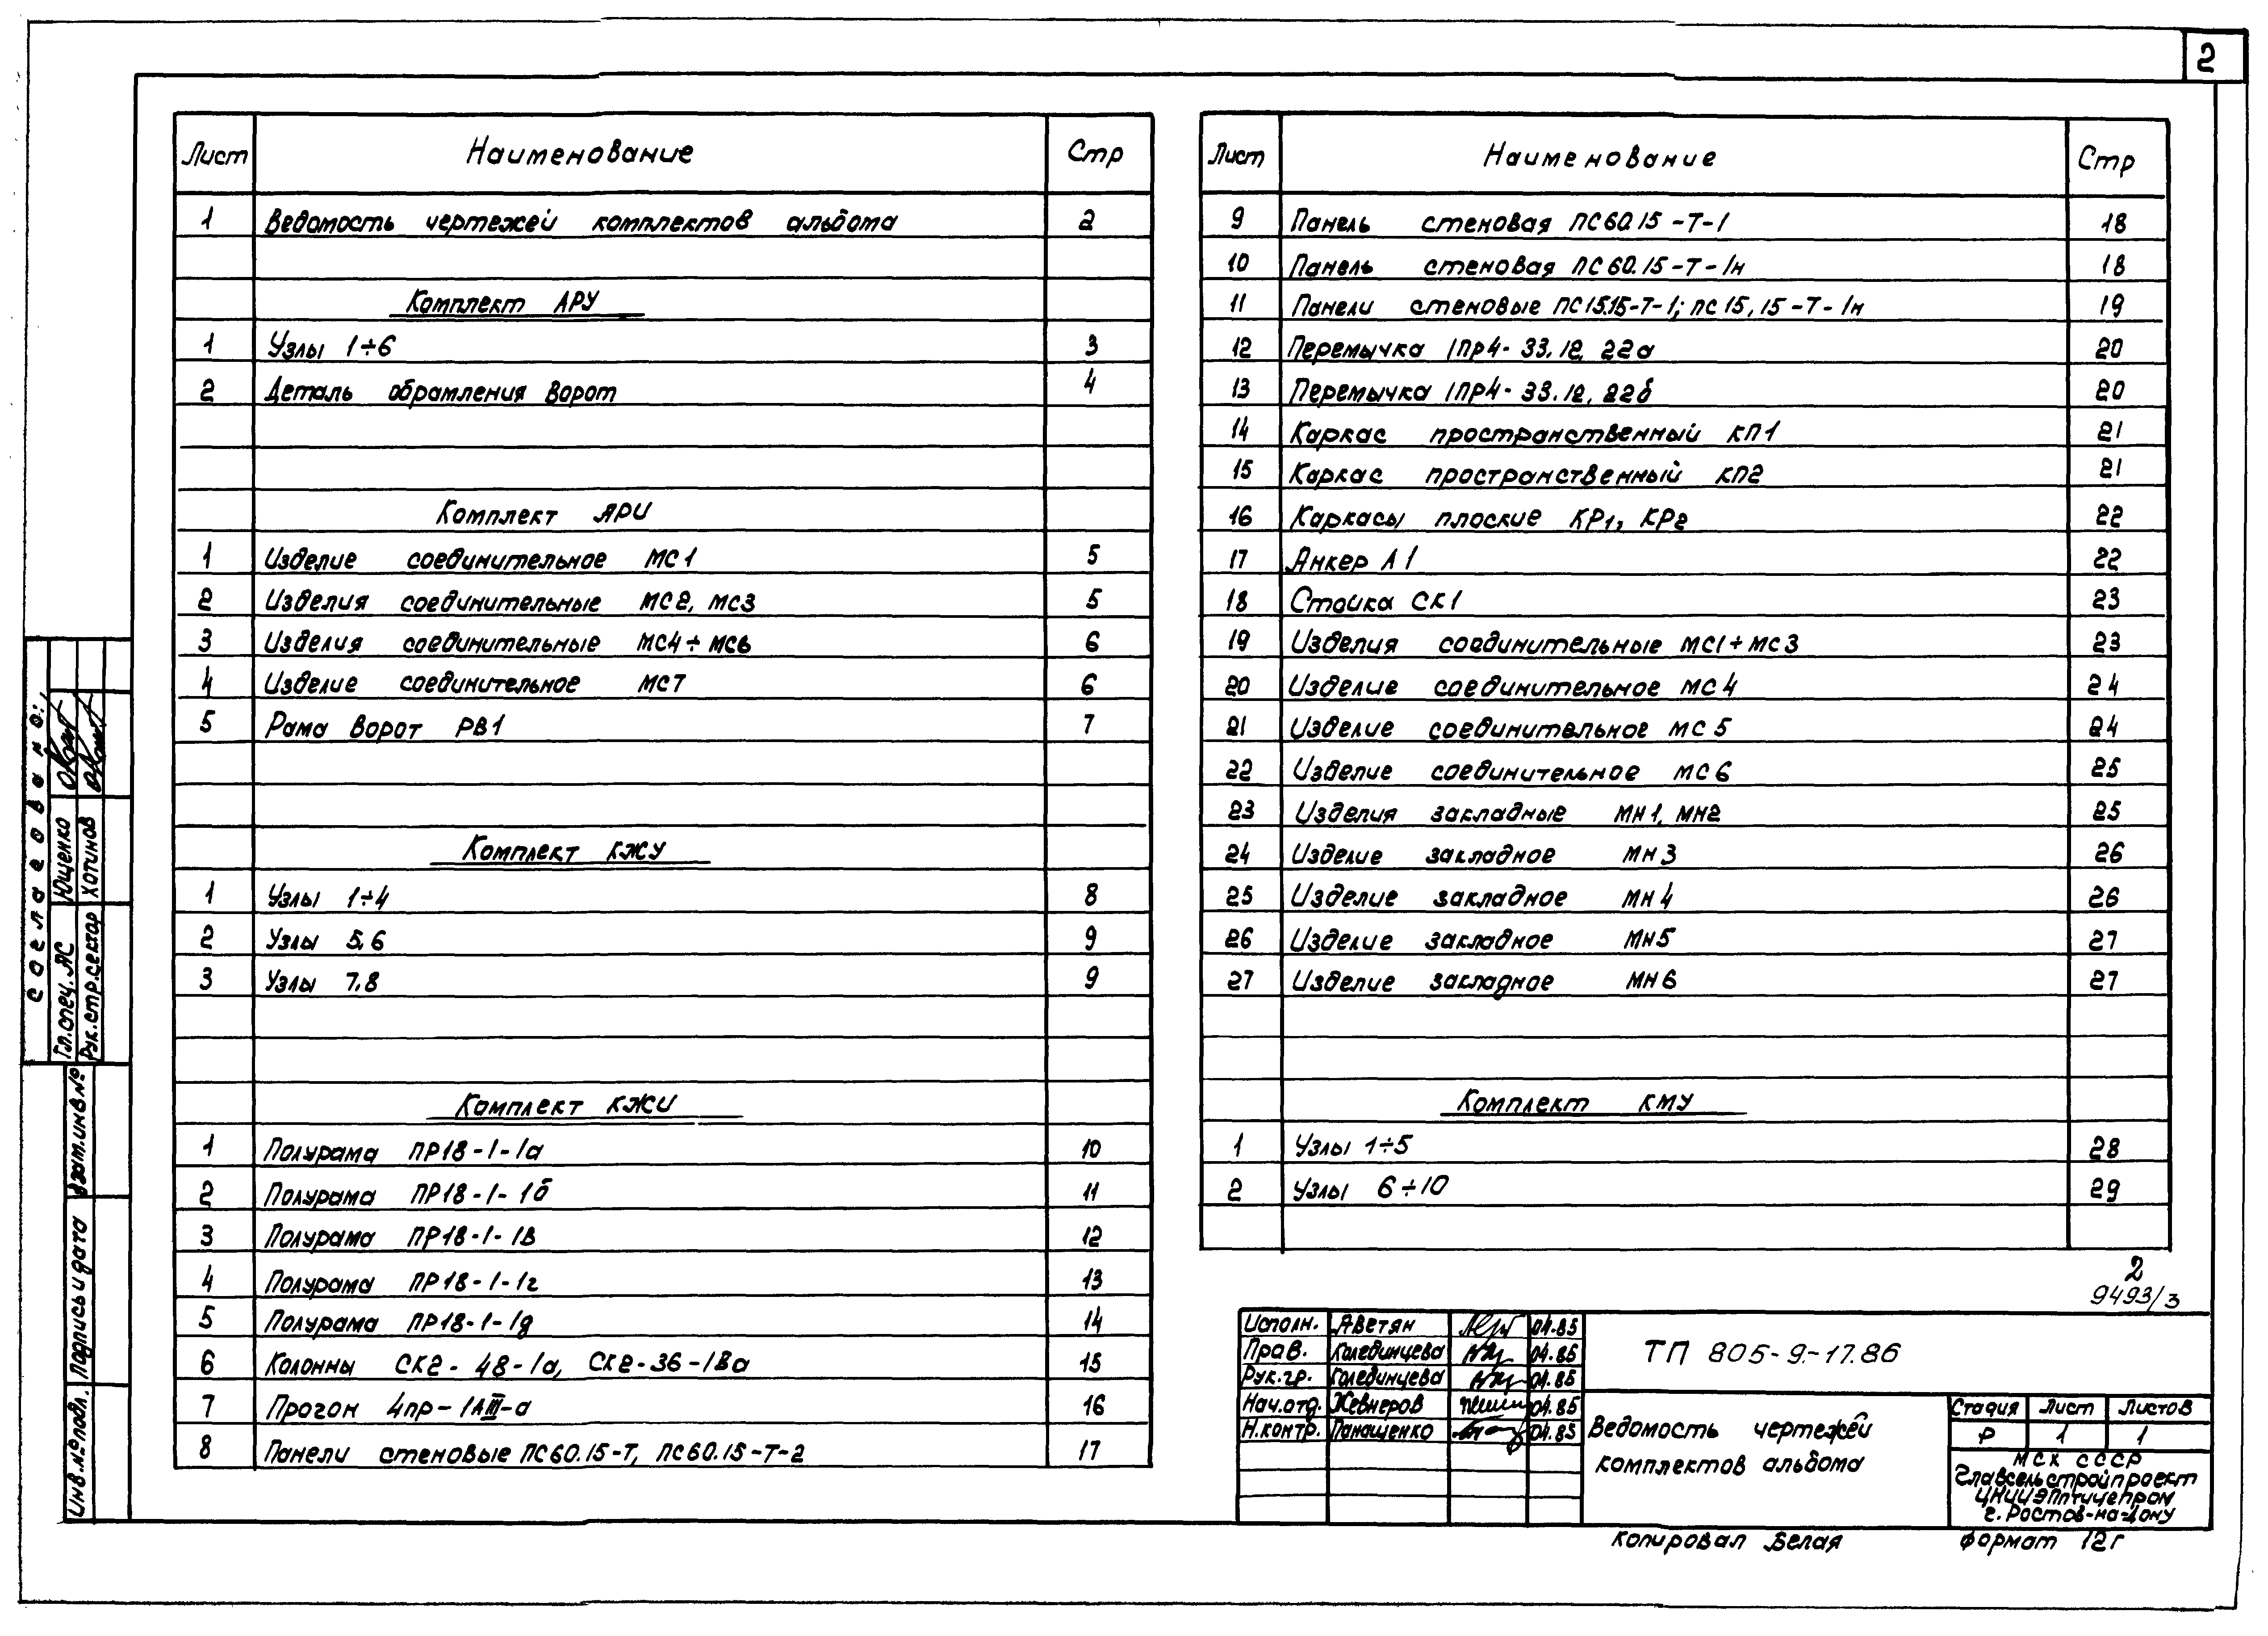 2
Лист Наименование Стр
1 Ведомость чертежей комплектов альбома 2
Комплект АРУ
1 Узлы 1÷6 3
2 Деталь обрамления ворот 4
Комплект АРИ
1 Изделие соединительное МС1 5
2 Изделия соединительные МС2, МС3 5
3 Изделия соединительные МС4÷МС6 6
4 Изделие соединительное МС7 6
5 Рама ворот РВ1 7
Комплект КЖУ
1 Узлы 1÷4 8
2 Узлы 5,6 9
3 Узлы 7,8 9
Комплект КЖИ
1 Полурама ПР18-1-1а 10
2 Полурама ПР18-1-1б 11
3 Полурама ПР18-1-1в 12
4 Полурама ПР18-1-1г 13
5 Полурама ПР18-1-1д 14
6 Колонны СК2-48-1а, СК2-36-1Ва 15
7 Прогон 4пр-1АIII-а 16
8 Панели стеновые ПС60.15-Т, ПС60.15-Т-2 17
Лист Наименование Стр
9 Панель стеновая ПС60.15-Т-1 18
10 Панель стеновая ПС60.15-Т-1н 18
11 Панели стеновые ПС15.15-Т-1; ПС15,15-Т-1н 19
12 Перемычка 1ПР4-33.12.22а 20
13 Перемычка 1ПР4-33.12.22б 20
14 Каркас пространственный КП1 21
15 Каркас пространственный КП2 21
16 Каркасы плоские КР1, КР2 22
17 Анкер А1 22
18 Стойка СК1 23
19 Изделия соединительные МС1÷МС3 23
20 Изделие соединительное МС4 24
21 Изделие соединительное МС5 24
22 Изделие соединительное МС6 25
23 Изделия закладные МН1, МН2 25
24 Изделие закладное МН3 26
25 Изделие закладное МН4 26
26 Изделие закладное МН5 27
27 Изделие закладное МН6 27
Комплект КМУ
1 Узлы 1÷5 28
2 Узлы 6÷10 29
2
9493/3
Исполн. Аветян 04.85
Пров. Голединцева 04.85
Рук.гр. Голединцева 04.85
Нач.отд. Жевнеров 04.85
Н.контр. Панащенко 04.85
ТП 805-9-17.86
Ведомость чертежей
комплектов альбома
Стадия Лист Листов
Р 1 1
МСХ СССР
Главсельстройпроект
ЦНИИЭПптицепром
г. Ростов-на-Дону
Копировал Белая Формат 12г
Согласовано:
Гл.спец. АС Ющенко
Рук.стр.сектор Хотинов
Взам.инв№
Подпись и дата
Инв.№подл.